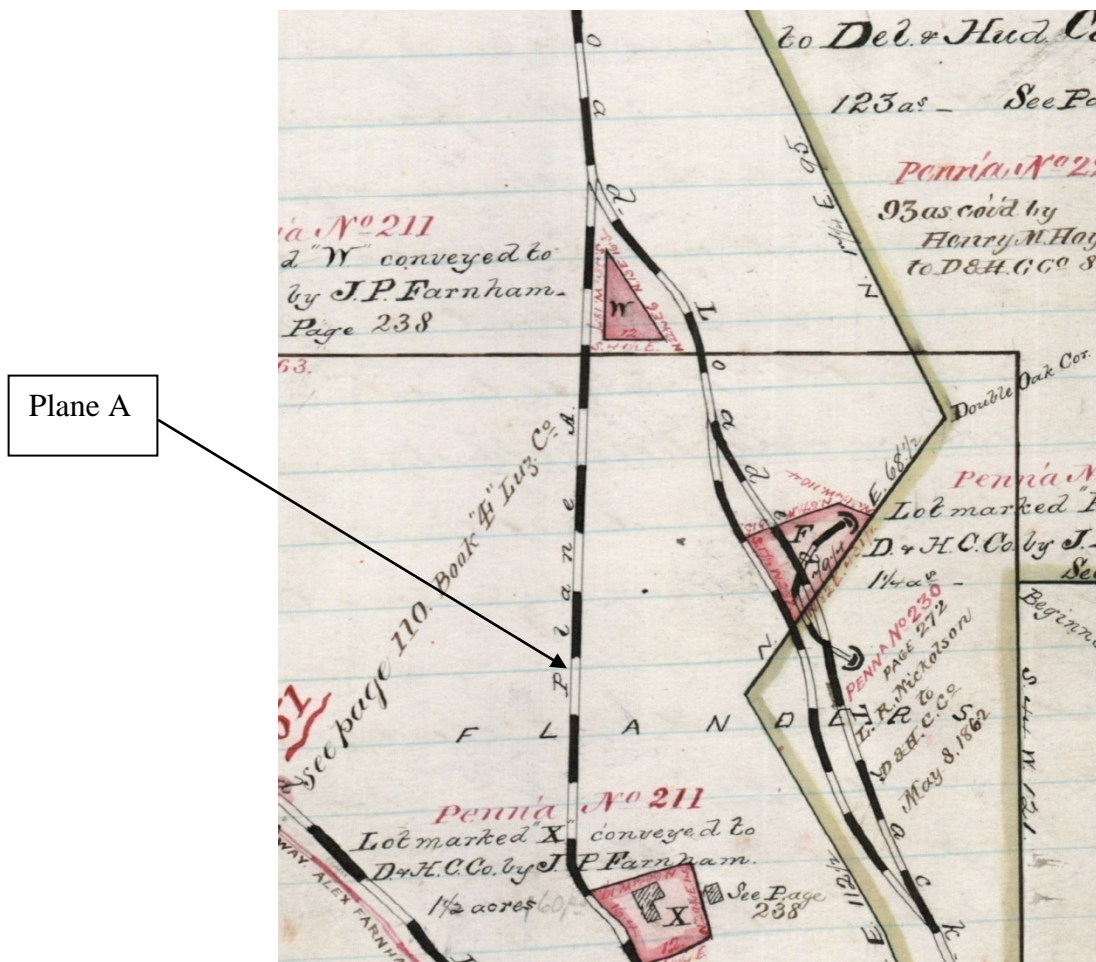 to Del. & Hud. C
123 as - See Pa
Penn'a Nº 2
93 as cov'd by
Henry M. Hoy
to D & H. C Cº 8
N. 1¼ E. 95.
oad
Loaded Track
'a Nº 211
d "W" conveyed to
by J. P. Farnham.
Page 238
W
12
63.
Double Oak Cor.
Plane A
Plane A.
see page 110. Book "4" Luz. Cº
E. 68½
N.
Penn'a N
Lot marked "F
D. & H. C. Co. by J.
1¼ as -
See
F
Beginn
PENNA Nº 230
PAGE 272
L. R. Nickolson
to
D & H. C. Cº
May 8. 1862
FLANDERS
S. 44 W. 121.
51
Penn'a Nº 211
Lot marked "X" conveyed to
D. & H. C. Co. by J. P. Farnham.
1½ acres
See Page
238
X
12
WAY. ALEX FARNHA
E. 112½